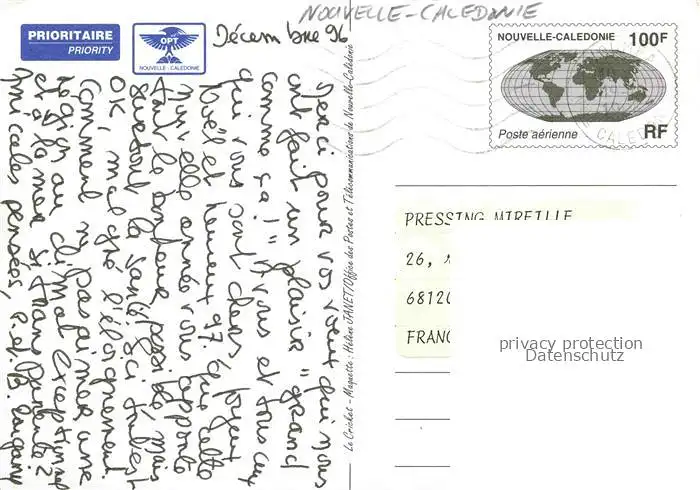 NOUVELLE-CALEDONIE
PRIORITAIRE
PRIORITY
OPT
NOUVELLE - CALEDONIE
Décembre 96
Merci pour vos voeux qui nous
ont fait un plaisir "grand
comme ça!" A vous et tous ceux
qui vous sont chers, Joyeux
Noël et heureux 97. que cette
nouvelle année vous apporte
tout le bonheur possible mais
surtout la santé. Ici tout est
OK, malgré l'éloignement.
Comment ne pas aimer une
région au climat exceptionnel
et à la mer si
Amicales pensées,
Le Cricket - Maquette : Hélène JANET/Office des Postes et Télécommunications de Nouvelle-Calédonie
NOUVELLE-CALEDONIE 100F
Poste aérienne RF
CALEDO
PRESSING MIREILLE
26,
6812
FRANC
privacy protection
Datenschutz